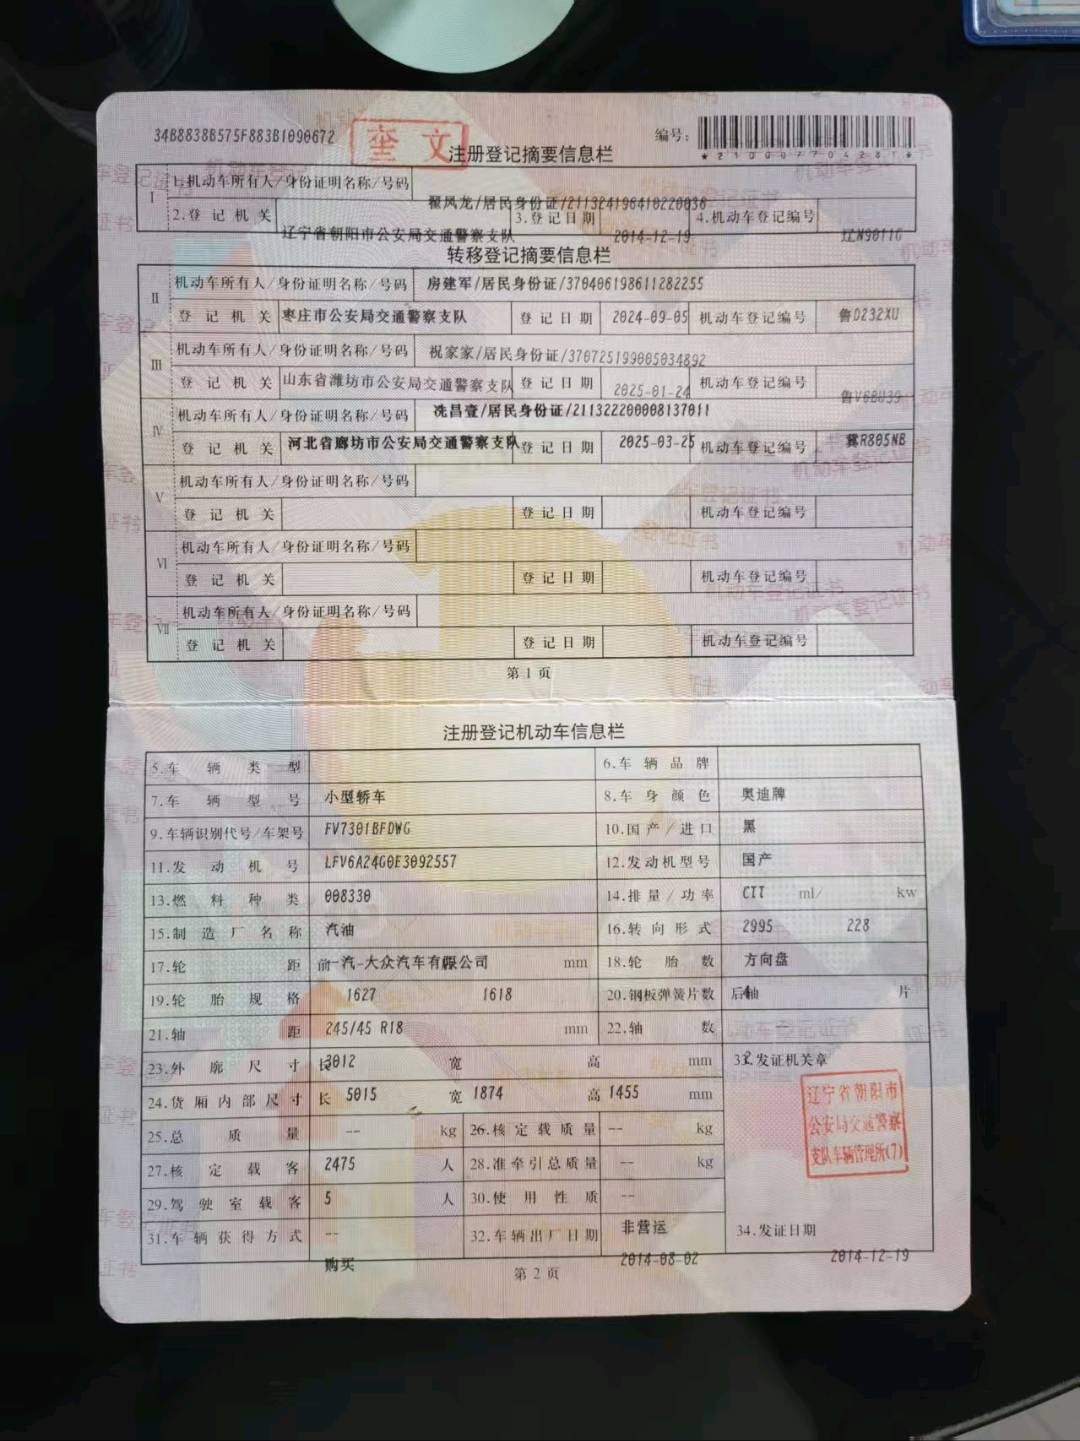 34B8838B575F883B1090672
奎文
编号:
*210007704281*
注册登记摘要信息栏
I 1.机动车所有人/身份证明名称/号码 翟凤龙/居民身份证/211324196410220038
2.登记机关 辽宁省朝阳市公安局交通警察支队 3.登记日期 2014-12-19 4.机动车登记编号 辽N9011G
转移登记摘要信息栏
II 机动车所有人/身份证明名称/号码 房建军/居民身份证/370406198611282255
登记机关 枣庄市公安局交通警察支队 登记日期 2024-09-05 机动车登记编号 鲁D232XU
III 机动车所有人/身份证明名称/号码 祝家家/居民身份证/370725199005034892
登记机关 山东省潍坊市公安局交通警察支队 登记日期 2025-01-24 机动车登记编号 鲁V6BU39
IV 机动车所有人/身份证明名称/号码 冼昌壹/居民身份证/211322200008137011
登记机关 河北省廊坊市公安局交通警察支队 登记日期 2025-03-25 机动车登记编号 冀R805NB
V 机动车所有人/身份证明名称/号码
登记机关 登记日期 机动车登记编号
VI 机动车所有人/身份证明名称/号码
登记机关 登记日期 机动车登记编号
VII 机动车所有人/身份证明名称/号码
登记机关 登记日期 机动车登记编号
第1页
注册登记机动车信息栏
5.车辆类型 6.车辆品牌
7.车辆型号 小型轿车 8.车身颜色 奥迪牌
9.车辆识别代号/车架号 FV7301BFDWG 10.国产/进口 黑
11.发动机号 LFV6A24G0E3092557 12.发动机型号 国产
13.燃料种类 008330 14.排量/功率 CTT ml/ kw
15.制造厂名称 汽油 16.转向形式 2995 228
17.轮距 前一汽-大众汽车有限公司 mm 18.轮胎数 方向盘
19.轮胎规格 1627 1618 20.钢板弹簧片数 后轴 4 片
21.轴距 245/45 R18 mm 22.轴数 --
23.外廓尺寸 长 3012 宽 高 mm 33.发证机关章 2
24.货厢内部尺寸 长 5015 宽 1874 高 1455 mm
辽宁省朝阳市
公安局交通警察
支队车辆管理所(7)
25.总质量 -- kg 26.核定载质量 -- kg
27.核定载客 2475 人 28.准牵引总质量 -- kg
29.驾驶室载客 5 人 30.使用性质 --
31.车辆获得方式 -- 32.车辆出厂日期 非营运 34.发证日期
购买 2014-08-02 2014-12-19
第2页